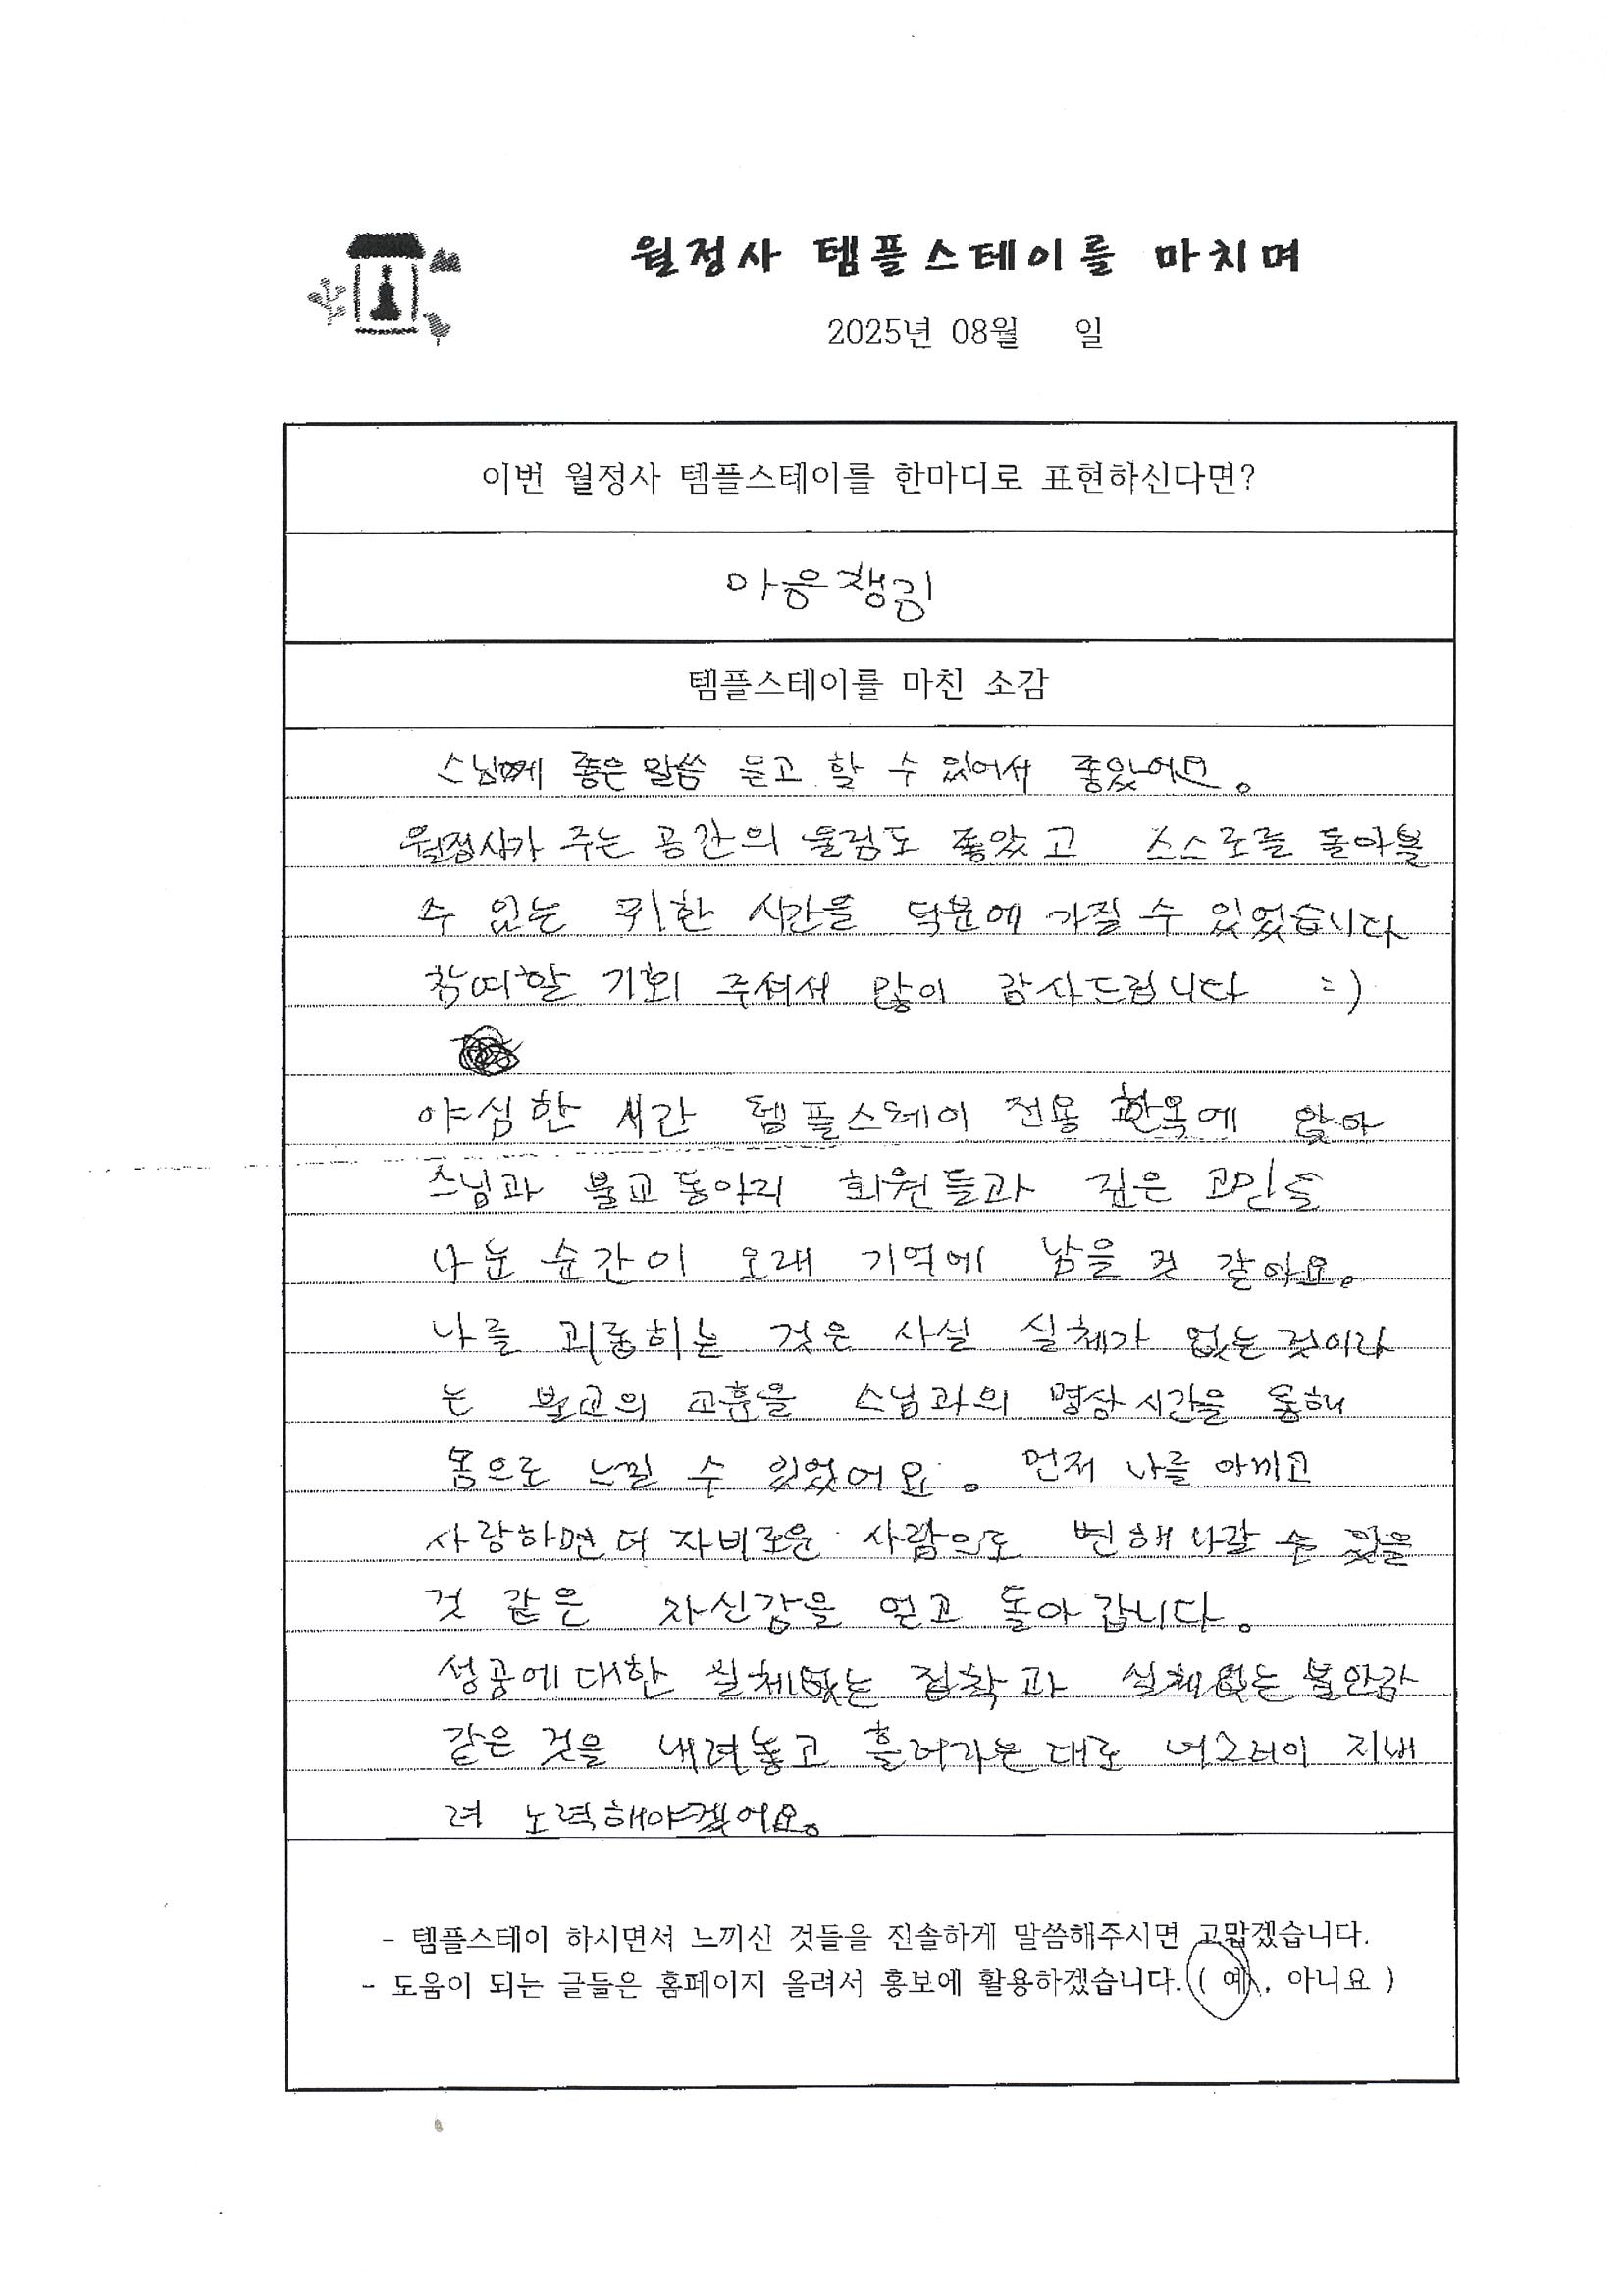 월정사 템플스테이를 마치며
2025년 08월 일
이번 월정사 템플스테이를 한마디로 표현하신다면?
마음챙김
템플스테이를 마친 소감
스님께 좋은 말씀 듣고 할 수 있어서 좋았어요.
월정사가 주는 공간의 울림도 좋았고 스스로를 돌아볼
수 있는 귀한 시간을 덕분에 가질 수 있었습니다
참여할 기회 주셔서 많이 감사드립니다 :)
야심한 시간 템플스테이 전용 한옥에 앉아
스님과 불교동아리 회원들과 깊은 고민을
나눈 순간이 오래 기억에 남을 것 같아요.
나를 괴롭히는 것은 사실 실체가 없는 것이라
는 불교의 교훈을 스님과의 명상 시간을 통해
몸으로 느낄 수 있었어요. 먼저 나를 아끼고
사랑하면 더 자비로운 사람으로 변해 나갈 수 있을
것 같은 자신감을 얻고 돌아갑니다.
성공에 대한 실체없는 집착과 실체없는 불안감
같은 것을 내려놓고 흘러가는 대로 너그러이 지내
려 노력해야겠어요.
- 템플스테이 하시면서 느끼신 것들을 진솔하게 말씀해주시면 고맙겠습니다.
- 도움이 되는 글들은 홈페이지 올려서 홍보에 활용하겠습니다. ( 예, 아니요 )